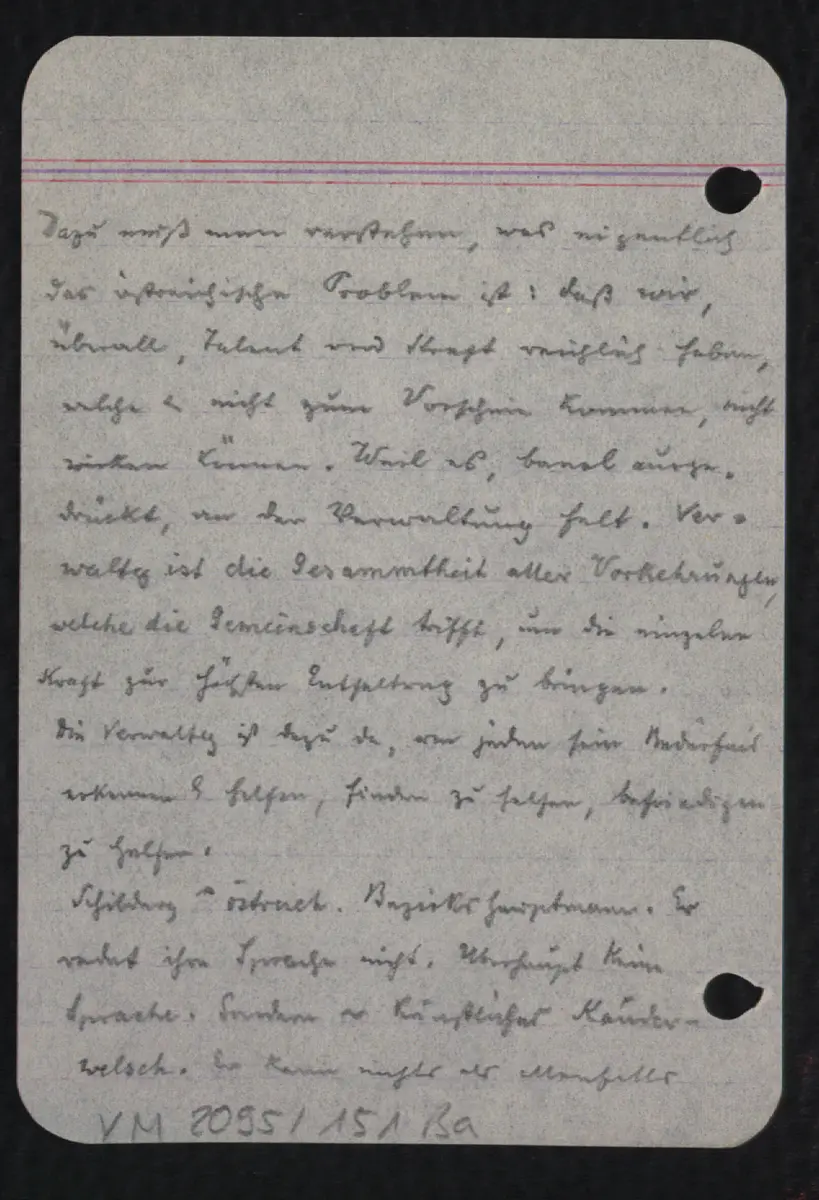 Dazu muß man verstehen, was eigentlich
das östreichische Problem ist: daß wir,
überall, Talent und Kraft reichlich haben,
welche nicht zum Vorschein kommen, nicht
wirken können. Weil es, banal ausge-
drückt, an der Verwaltung fehlt. Ver-
waltg ist die Gesammtheit aller Vorkehrungen,
welche die Gemeinschaft trifft, um die einzelne
Kraft zur höchsten Entfaltung zu bringen.
Die Verwaltg ist dazu da, jeden sein Bedürfnis
erkennen helfen, finden zu helfen, befriedigen
zu helfen.
Schilderg östreich. Bezirkshauptmann. Er
redet ihre Sprache nicht. Überhaupt keine
Sprache. Sondern künstliches Kauder-
welsch. Er kann nichts als allenfalls
VM 2095/151 Ba